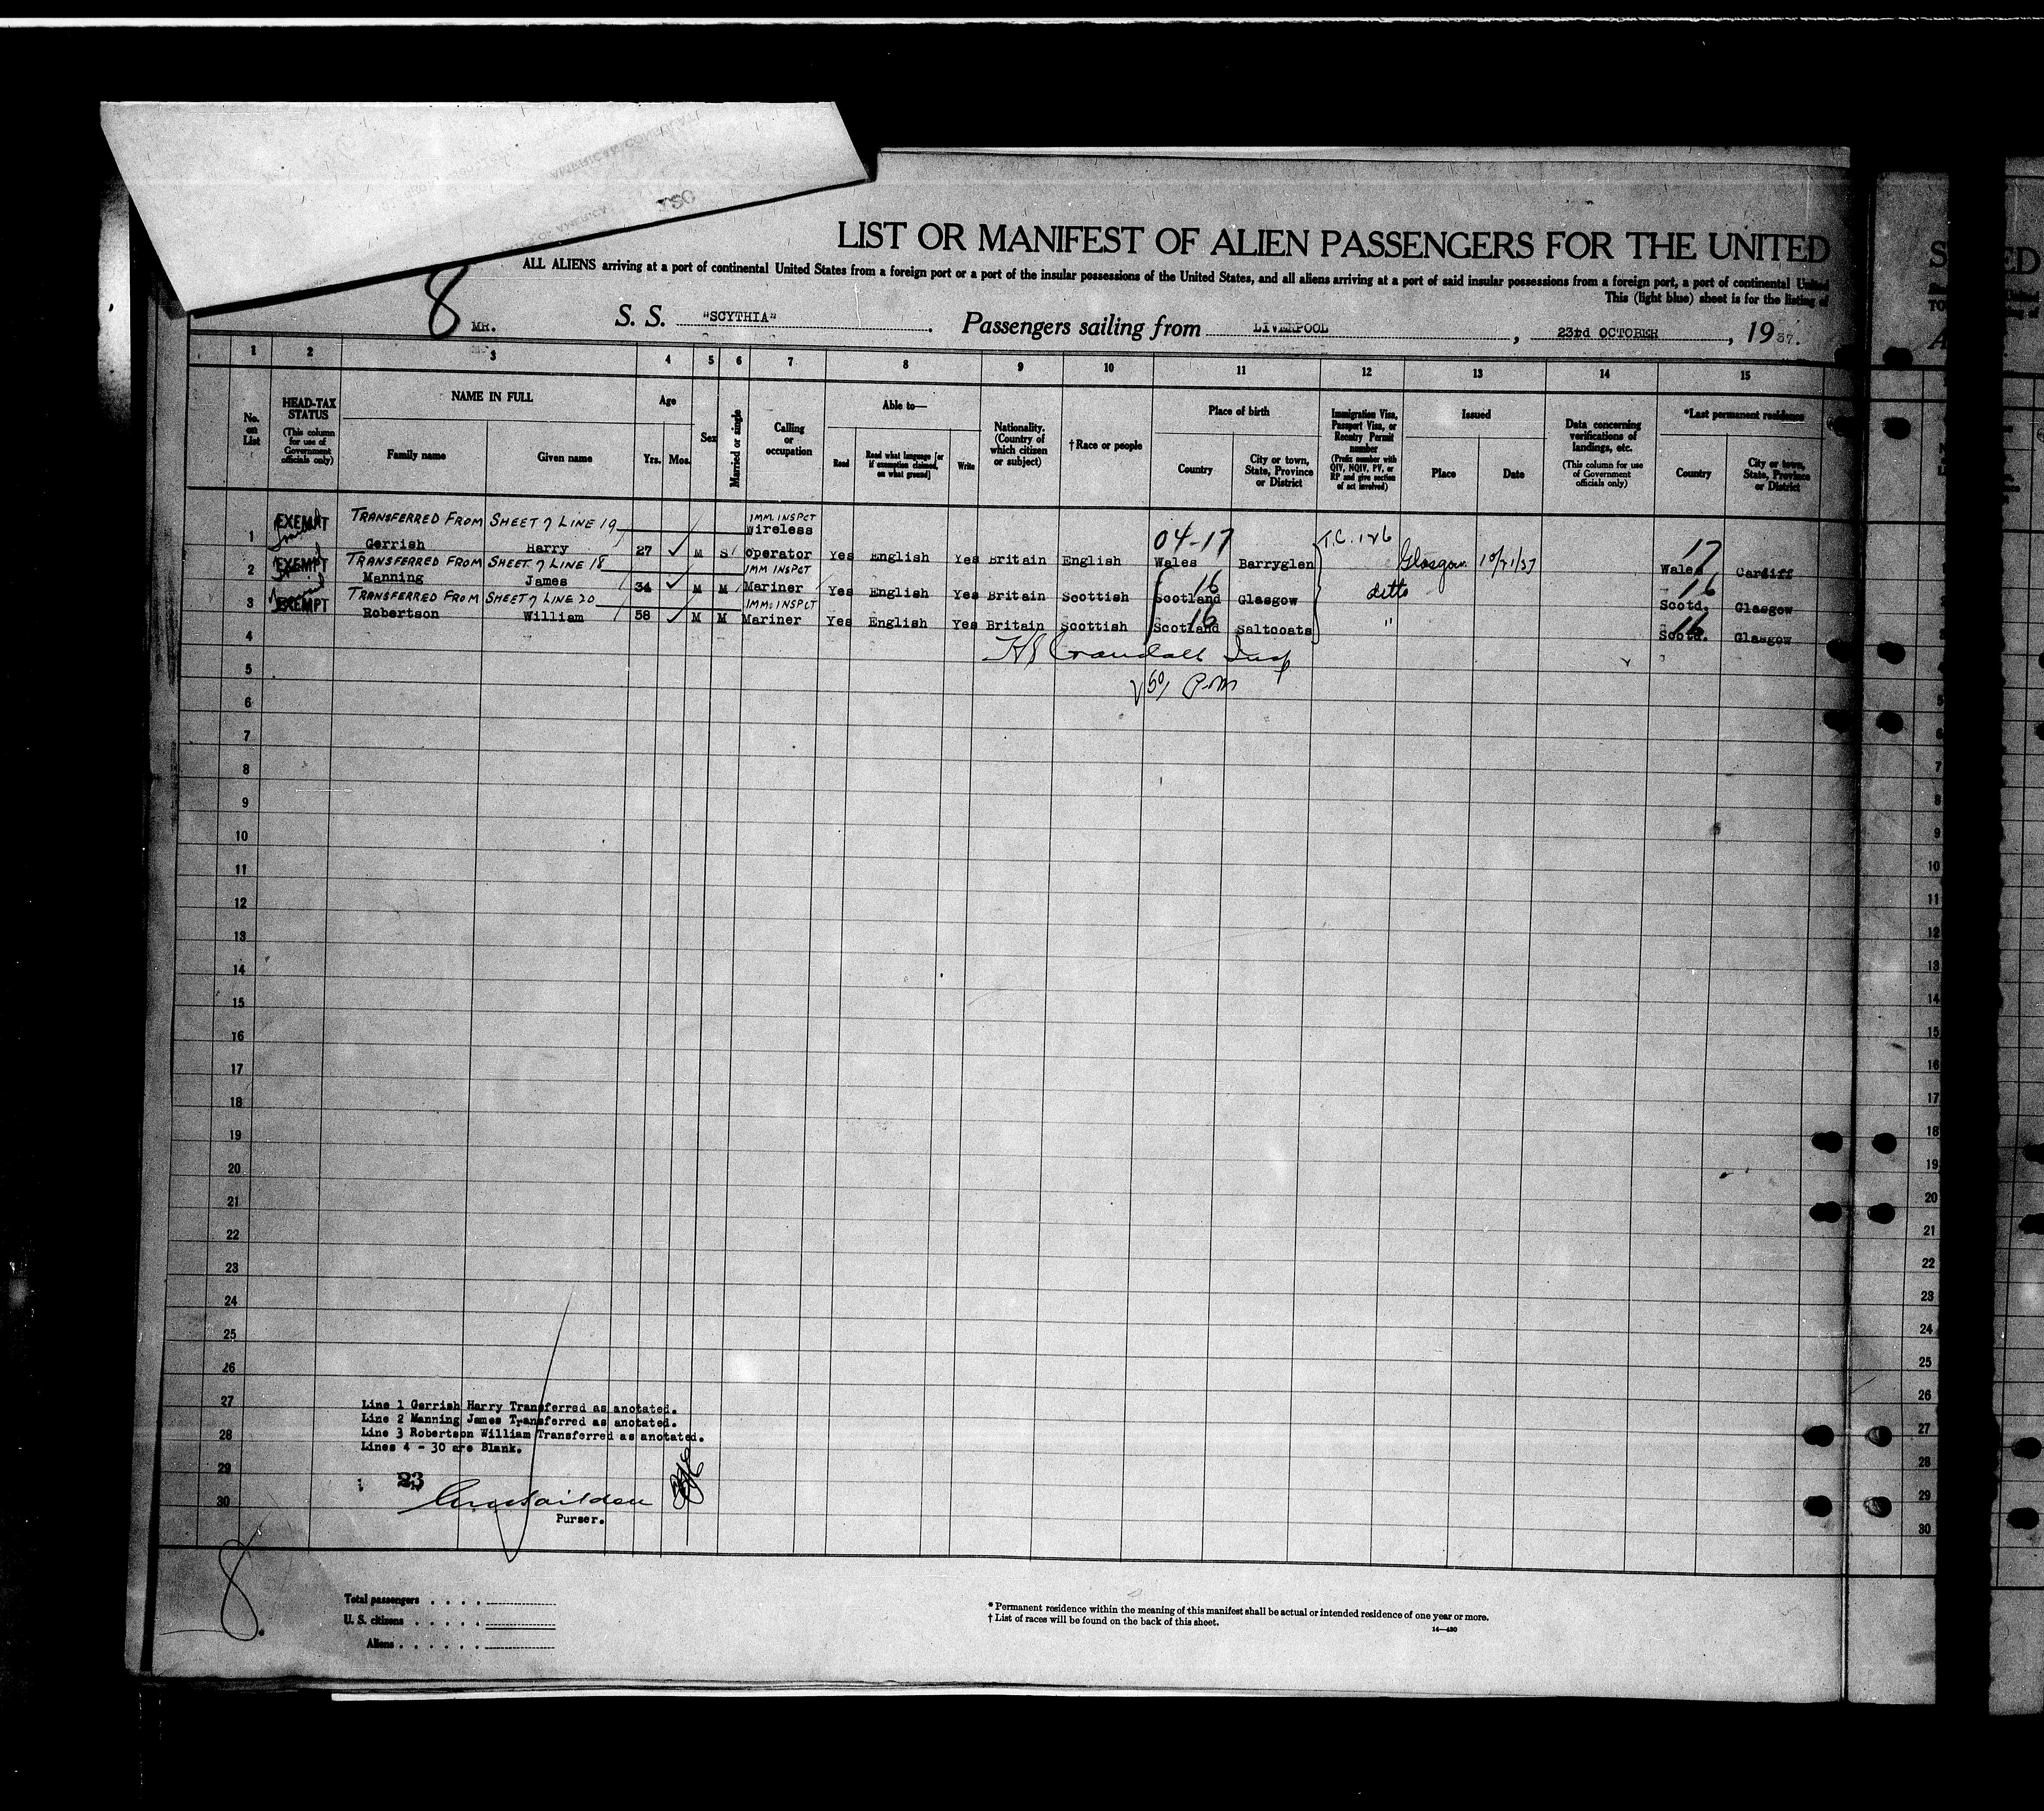 LIST OR MANIFEST OF ALIEN PASSENGERS FOR THE UNITED
ALL ALIENS arriving at a port of continental United States from a foreign port or a port of the insular possessions of the United States, and all aliens arriving at a port of said insular possessions from a foreign port, a port of continental United
This (light blue) sheet is for the listing of
8 MR. S. S. "SCYTHIA" Passengers sailing from LIVERPOOL, 23rd OCTOBER, 1937.
1 2 3 4 5 6 7 8 9 10 11 12 13 14 15
No. on List
HEAD-TAX STATUS (This column for use of Government officials only)
NAME IN FULL
Family name Given name
Age
Yrs. Mos.
Sex
Married or single
Calling or occupation
Able to—
Read Read what language [or if exemption claimed, on what ground] Write
Nationality. (Country of which citizen or subject)
†Race or people
Place of birth
Country City or town, State, Province or District
Immigration Visa, Passport Visa, or Reentry Permit number (Prefix number with QIV, NQIV, PV, or RP and give section of act involved)
Issued
Place Date
Data concerning verifications of landings, etc. (This column for use of Government officials only)
*Last permanent residence
Country City or town, State, Province or District
TRANSFERRED FROM SHEET 7 LINE 19 IMM. INSPCT
1 EXEMPT Gerrish Harry 27 M S Wireless operator Yes English Yes Britain English 04-17 Wales Barryglen T.C. 126 Glasgow 10/21/37 17 Wales Cardiff
TRANSFERRED FROM SHEET 7 LINE 18 IMM INSPCT
2 EXEMPT Manning James 34 M M Mariner Yes English Yes Britain Scottish 16 Scotland Glasgow ditto 16 Scotd. Glasgow
TRANSFERRED FROM SHEET 7 LINE 20 IMM. INSPCT
3 EXEMPT Robertson William 58 M M Mariner Yes English Yes Britain Scottish 16 Scotland Saltcoats " 16 Scotd. Glasgow
4
Crandall Insp
5
P.M
6
7
8
9
10
11
12
13
14
15
16
17
18
19
20
21
22
23
24
25
26
27
Line 1 Gerrish Harry Transferred as anotated.
Line 2 Manning James Transferred as anotated.
28
Line 3 Robertson William Transferred as anotated.
Lines 4 - 30 are Blank.
29
23
30
Purser.
8
Total passengers
U. S. citizens
Aliens
* Permanent residence within the meaning of this manifest shall be actual or intended residence of one year or more.
† List of races will be found on the back of this sheet.
14—430